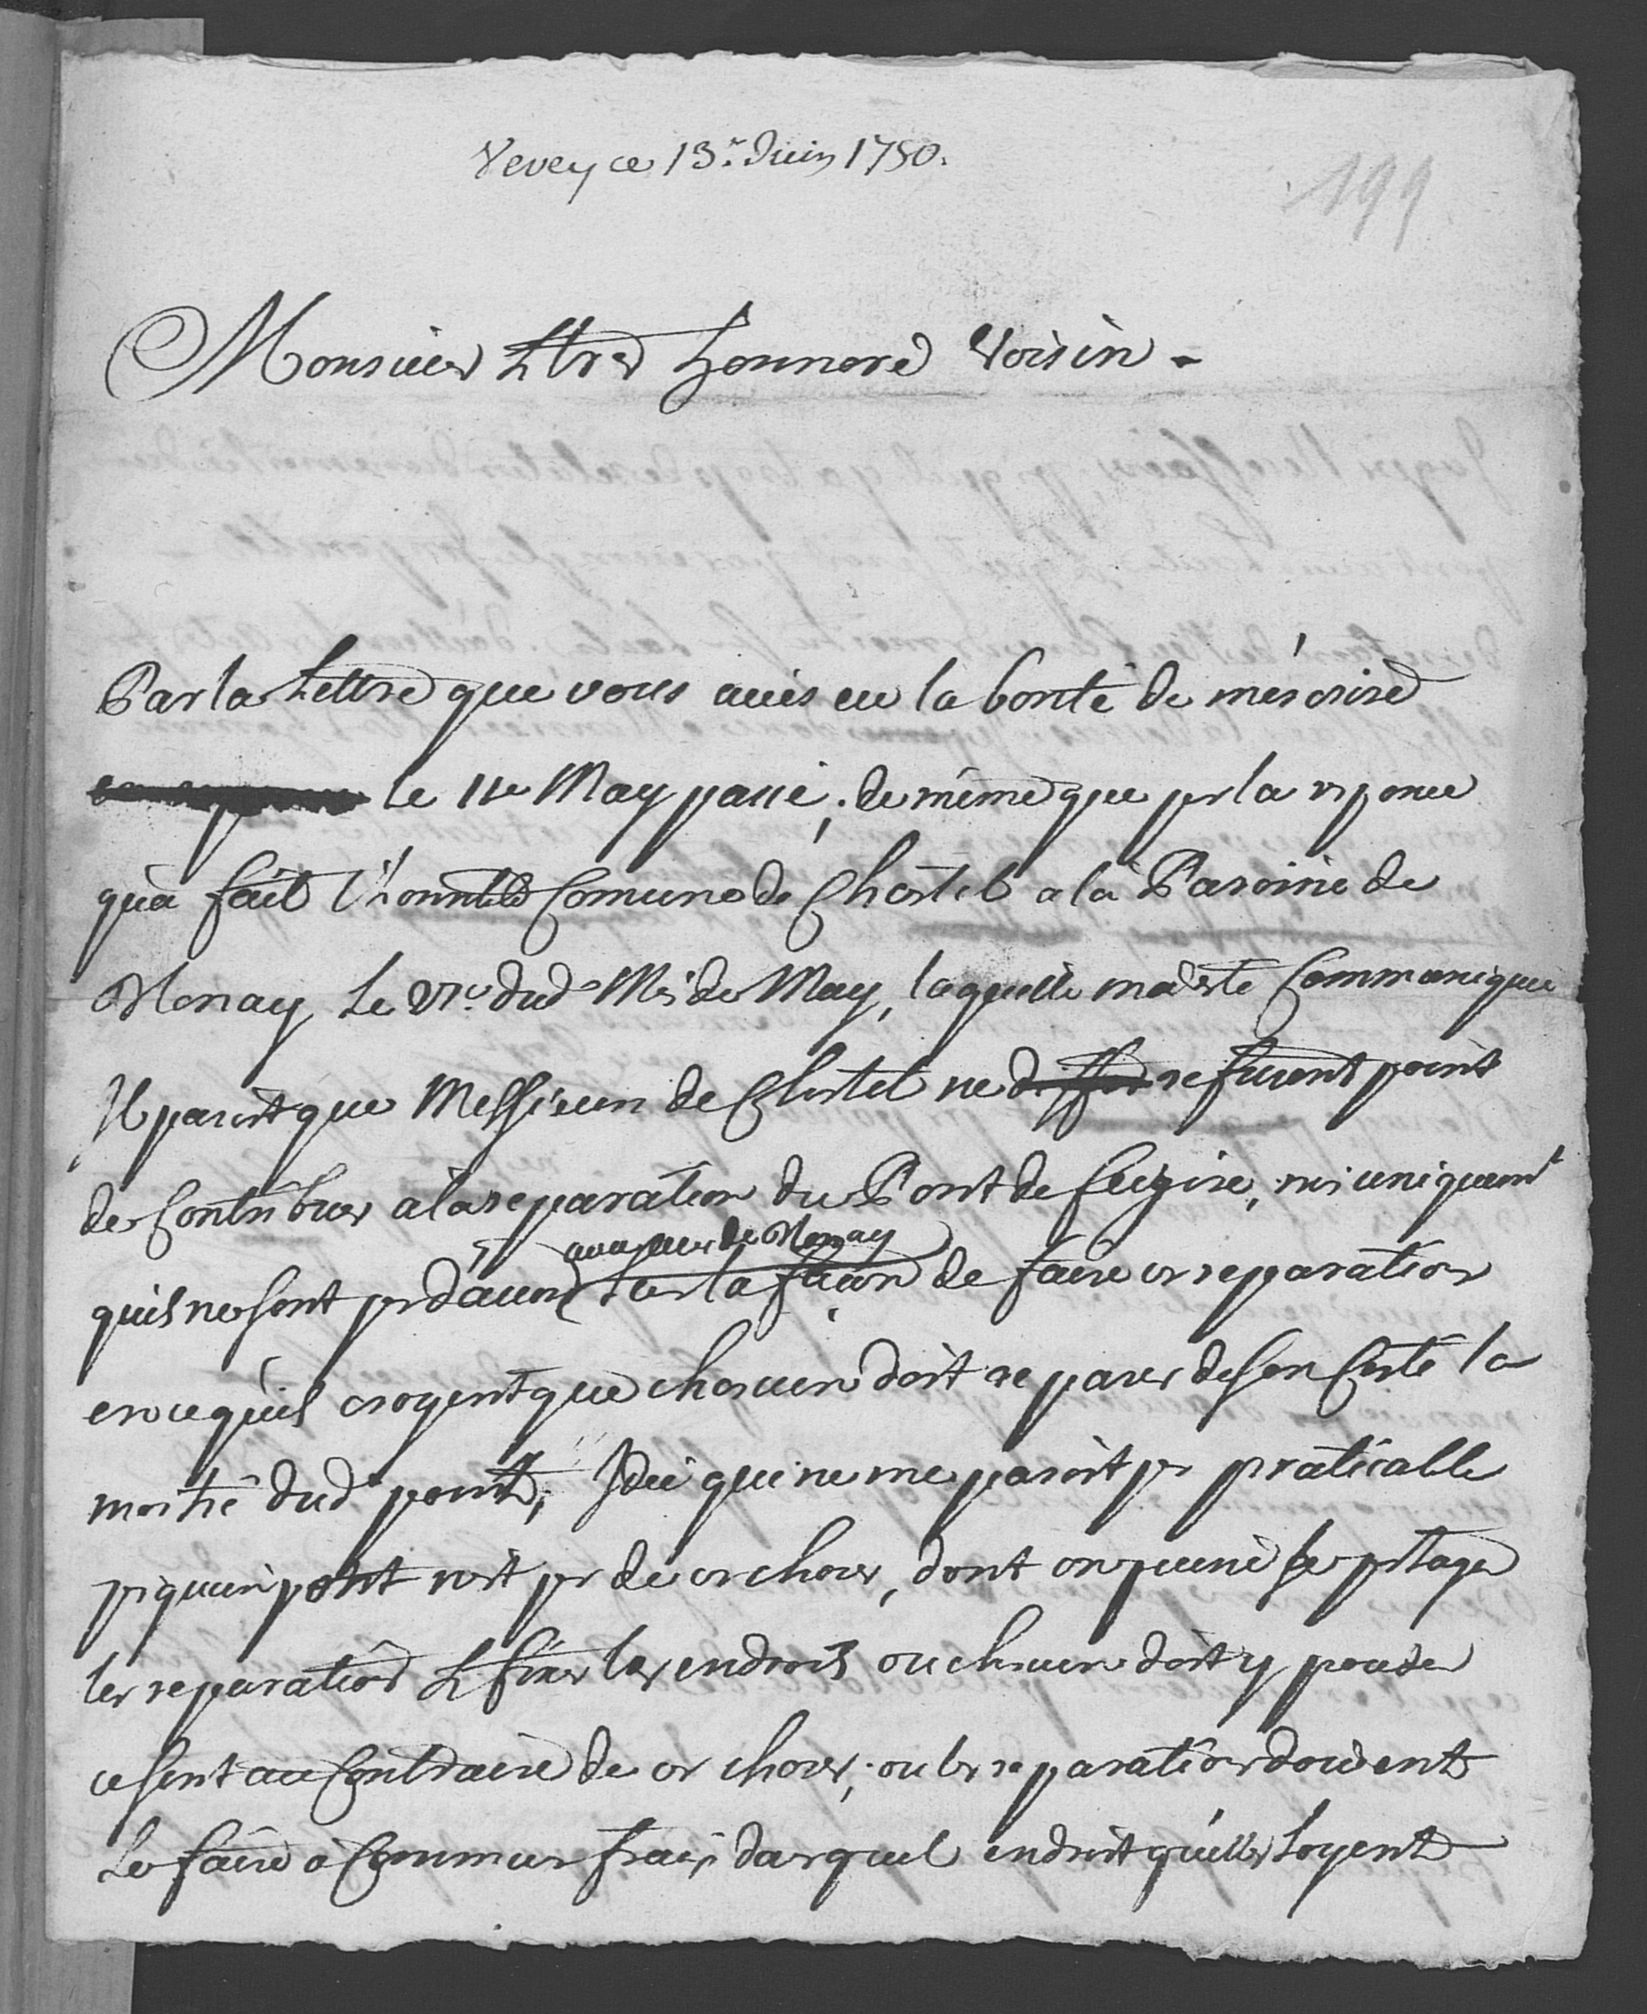 Vevey ce 13e. Juin 1750.
199
Monsieur & tres honnoré Voisin.
Par la Lettre que vous aviés eu la bonté de m'écrire
le 11e May passé, de même que pr la reponce
qu'a fait l'honnble Comune de Chastel a la Paroisse de
Blonay Le 21e. dud. Mois de May, laquelle m'a esté Communiquée
Il paroit que Messieurs de Chastel ne refusent point
de Contribuer a la reparation du Pont de Feigire, mi uniquemt
quils ne sont pas d'acord
avec ceux de Blonay
sur la façon de faire ces reparations
en ce qu'ils croyent que chascun doit reparer de son Costé la
moitié dud. pont; Idée qui ne me paroit pas praticable
psqu'un pont n'est pas de ces choses, dont on puisse se partager
les reparations & fixer les endroits ou chacun doit y poser
ce sont au Contraire de ces choses, ou les reparations doivent
se faire à Commun frais, dans quel endroit qu'elles soyent